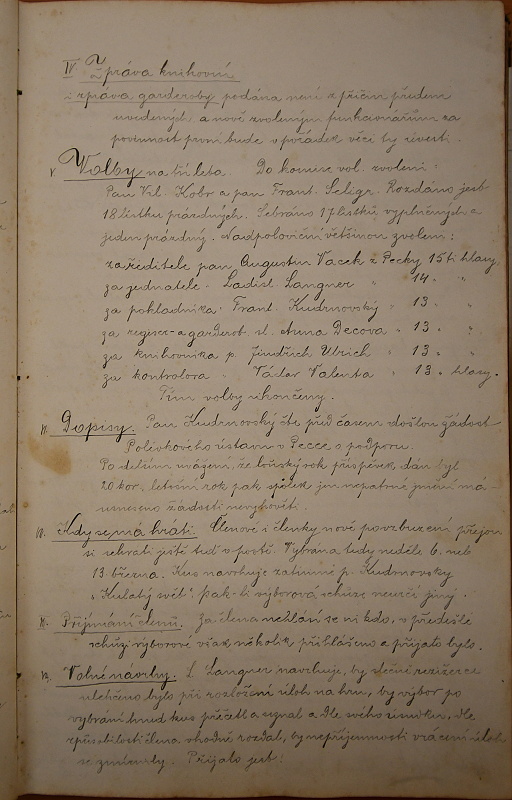 IV Zpráva knihovní
a zpráva garderoby podána není z příčin předem
uvedených, a nově zvoleným funkcionářům za
povinnost první bude v pořádek věci ty uvésti.
V. Volby na tři leta. Do komise vol. zvoleni:
Pan Vil. Kobr a pan Frant. Seligr. Rozdáno jest
18 lístku prázdných. Sebráno 17 lístků vyplněných a
jeden prázdný. Nadpoloviční většinou zvoleni:
za ředitele pan Augustin Vacek z Pecky 15ti hlasy.
za jednatele - Ladisl. Langner " 14 " "
za pokladníka: Frant. Kudrnovský " 13 " "
za regisr - a garderob. sl. Anna Decova " 13 " "
za knihovníka p. Jindřich Ulrich " 13 " "
za kontrolora " Václav Valenta " 13 " hlasy.
Tím volby ukončeny.
Dopisy. Pan Kudrnovský čte před časem došlou žádost
Polívkového ústavu v Pecce o podporu.
Po delším uvážení, že loňský rok příspěvek dán byl
20 kor. letošní rok pak spolek jen nepatrné jmění má
usneseno žádosti nevyhověti.
Kdy se má hráti. Členové i členky nově povzbuzení přejou
si sehrati ještě teď v postě. Vybrána tudy neděle 6. neb
13. března. Kus navrhuje zatímně p. Kudrnovský
"Kulatý svět". Pak-li výborová schůze neurčí jiný.
Přijímání členů. Za člena nehlásí se ni kdo, v předešlé
schůzi výborové však několik přihlášeno a přijato bylo.
Volné návrhy. S. Langner navrhuje, by slečně režisérce
ulehčeno bylo při rozložení úloh na hru, by výbor po
vybrání hned kus přečetl a uznal a dle svého úsudku, dle
způsobilosti člena vhodně rozdal, by nepříjemnosti vrácení úloh
se zmírnily. Přijato jest.